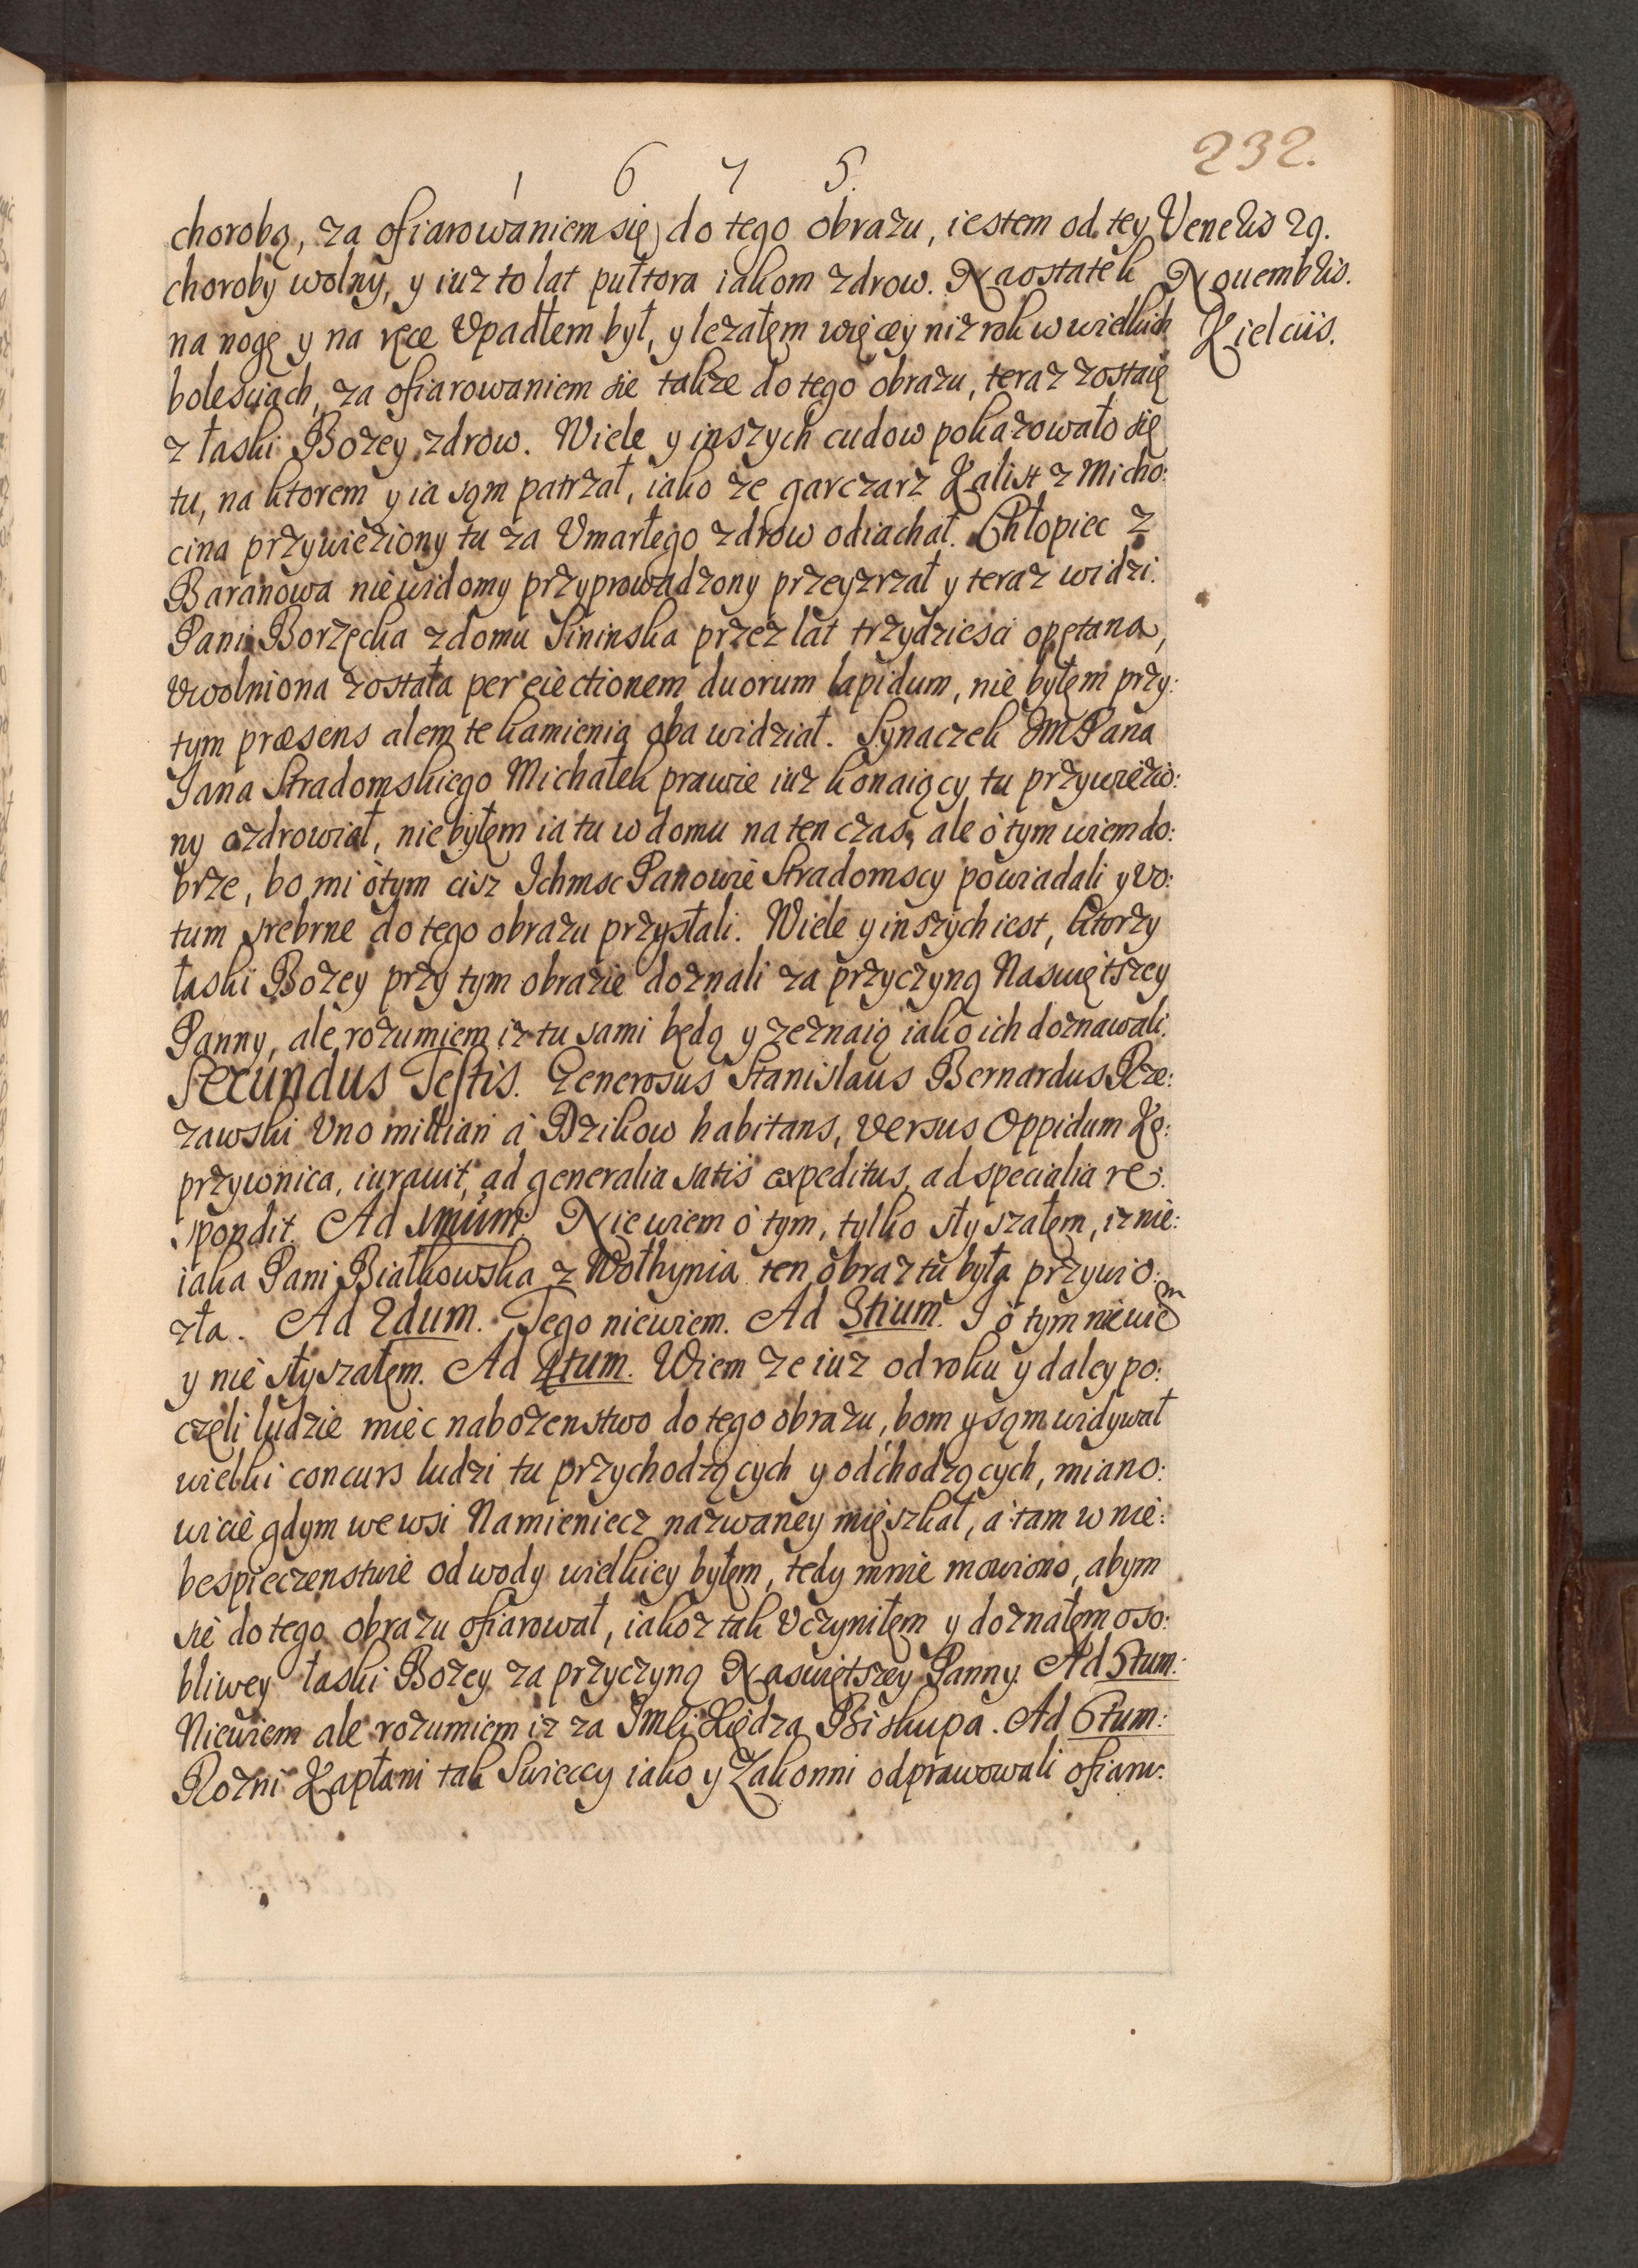 232.
1 6 7 5.
chorobą, za ofiarowaniem się do tego obrazu, iestem od tey
choroby wolny, y iuz to lat pułtora iakom zdrow. Naostatek
na nogę y na ręce Vpadłem był, y lezałem więcey niz rok w wielkich
bolesciach, za ofiarowaniem sie takze do tego obrazu, teraz zostaię
z łaski Bozey zdrow. Wiele y inszych cudow pokazowało się
tu, na ktorem y ia sąm patrzał, iako ze garczarz Kalist z Micho:
cina przywieziony tu za Vmarłego zdrow odiachał. Chłopiec z
Baranowa niewidomy przyprowadzony przeyzrzał y teraz widzi.
Pani Borzęcka z domu Sininska przez lat trzydziesci opętana,
Vwolniona została per eiectionem duorum lapidum, nie byłęm przy:
tym præsens alem te kamienia oba widział. Synaczek JM Pana
Jana Stradomskiego Michałek prawie iuz konaiący tu przywiezio:
ny ozdrowiał, nie byłęm ia tu w domu na ten czas, ale o tym wiem do:
brze, bo mi o tym cisz Ichmsc Panowie Stradomscy powiadali y Vo:
tum srebrne do tego obrazu przysłali. Wiele y inszych iest, ktorzy
łaski Bozey przy tym obrazie doznali za przyczyną Naswiętszey
Panny, ale rozumiem iz tu sami będą y zeznaią iako ich doznawali.
Secundus Testis. Generosus Stanislaus Bernardus Rze:
zawski Vno milliari à Dzikow habitans, versus Oppidum Ko:
przywnica, iurauit, ad generalia satis expeditus, ad specialia re:
spondit. Ad 1mum. Nie wiem o tym, tylko słyszałęm, iz nie:
iaka Pani Białkowska z Wołhynia ten obraz tu była przywio:
zła. Ad 2dum. Tego niewiem. Ad 3tium. I o tym niewiem
y nie słyszałęm. Ad 4tum. Wiem ze iuz od roku y daley po:
częli ludzie miec nabozenstwo do tego obrazu, bom y sąm widywał
wielki concurs ludzi tu przychodzących y odchodzących, miano:
wicie gdym we wsi Namieniecz nazwaney mięszkał, a tam w nie:
bespieczenstwie od wody wielkiey byłęm, tedy mnie mowiono, abym
sie do tego obrazu ofiarował, iakoz tak Vczyniłęm y doznałęm oso:
bliwey łaski Bozey za przyczyną Naswiętszey Panny. Ad 5tum.
Niewiem ale rozumiem iz za Imści Xiędza Biskupa. Ad 6tum:
Rozni Kapłani tak Swieccy iako y Zakonni odprawowali ofiarw:
Veneris 29.
Nouembris.
Kielciis.